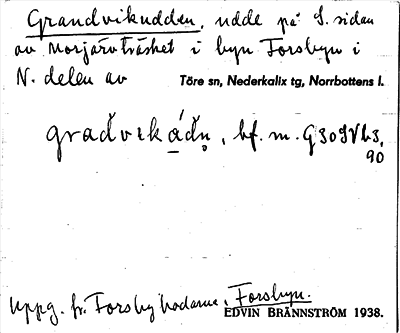 Grandvikudden, udde på S. sidan
av Morjärvträsket i byn Forsbyn i
N. delen av Töre sn, Nederkalix tg, Norrbottens l.
bf. m.
90
Uppg. fr. Forsbyn.
EDVIN BRÄNNSTRÖM 1938.